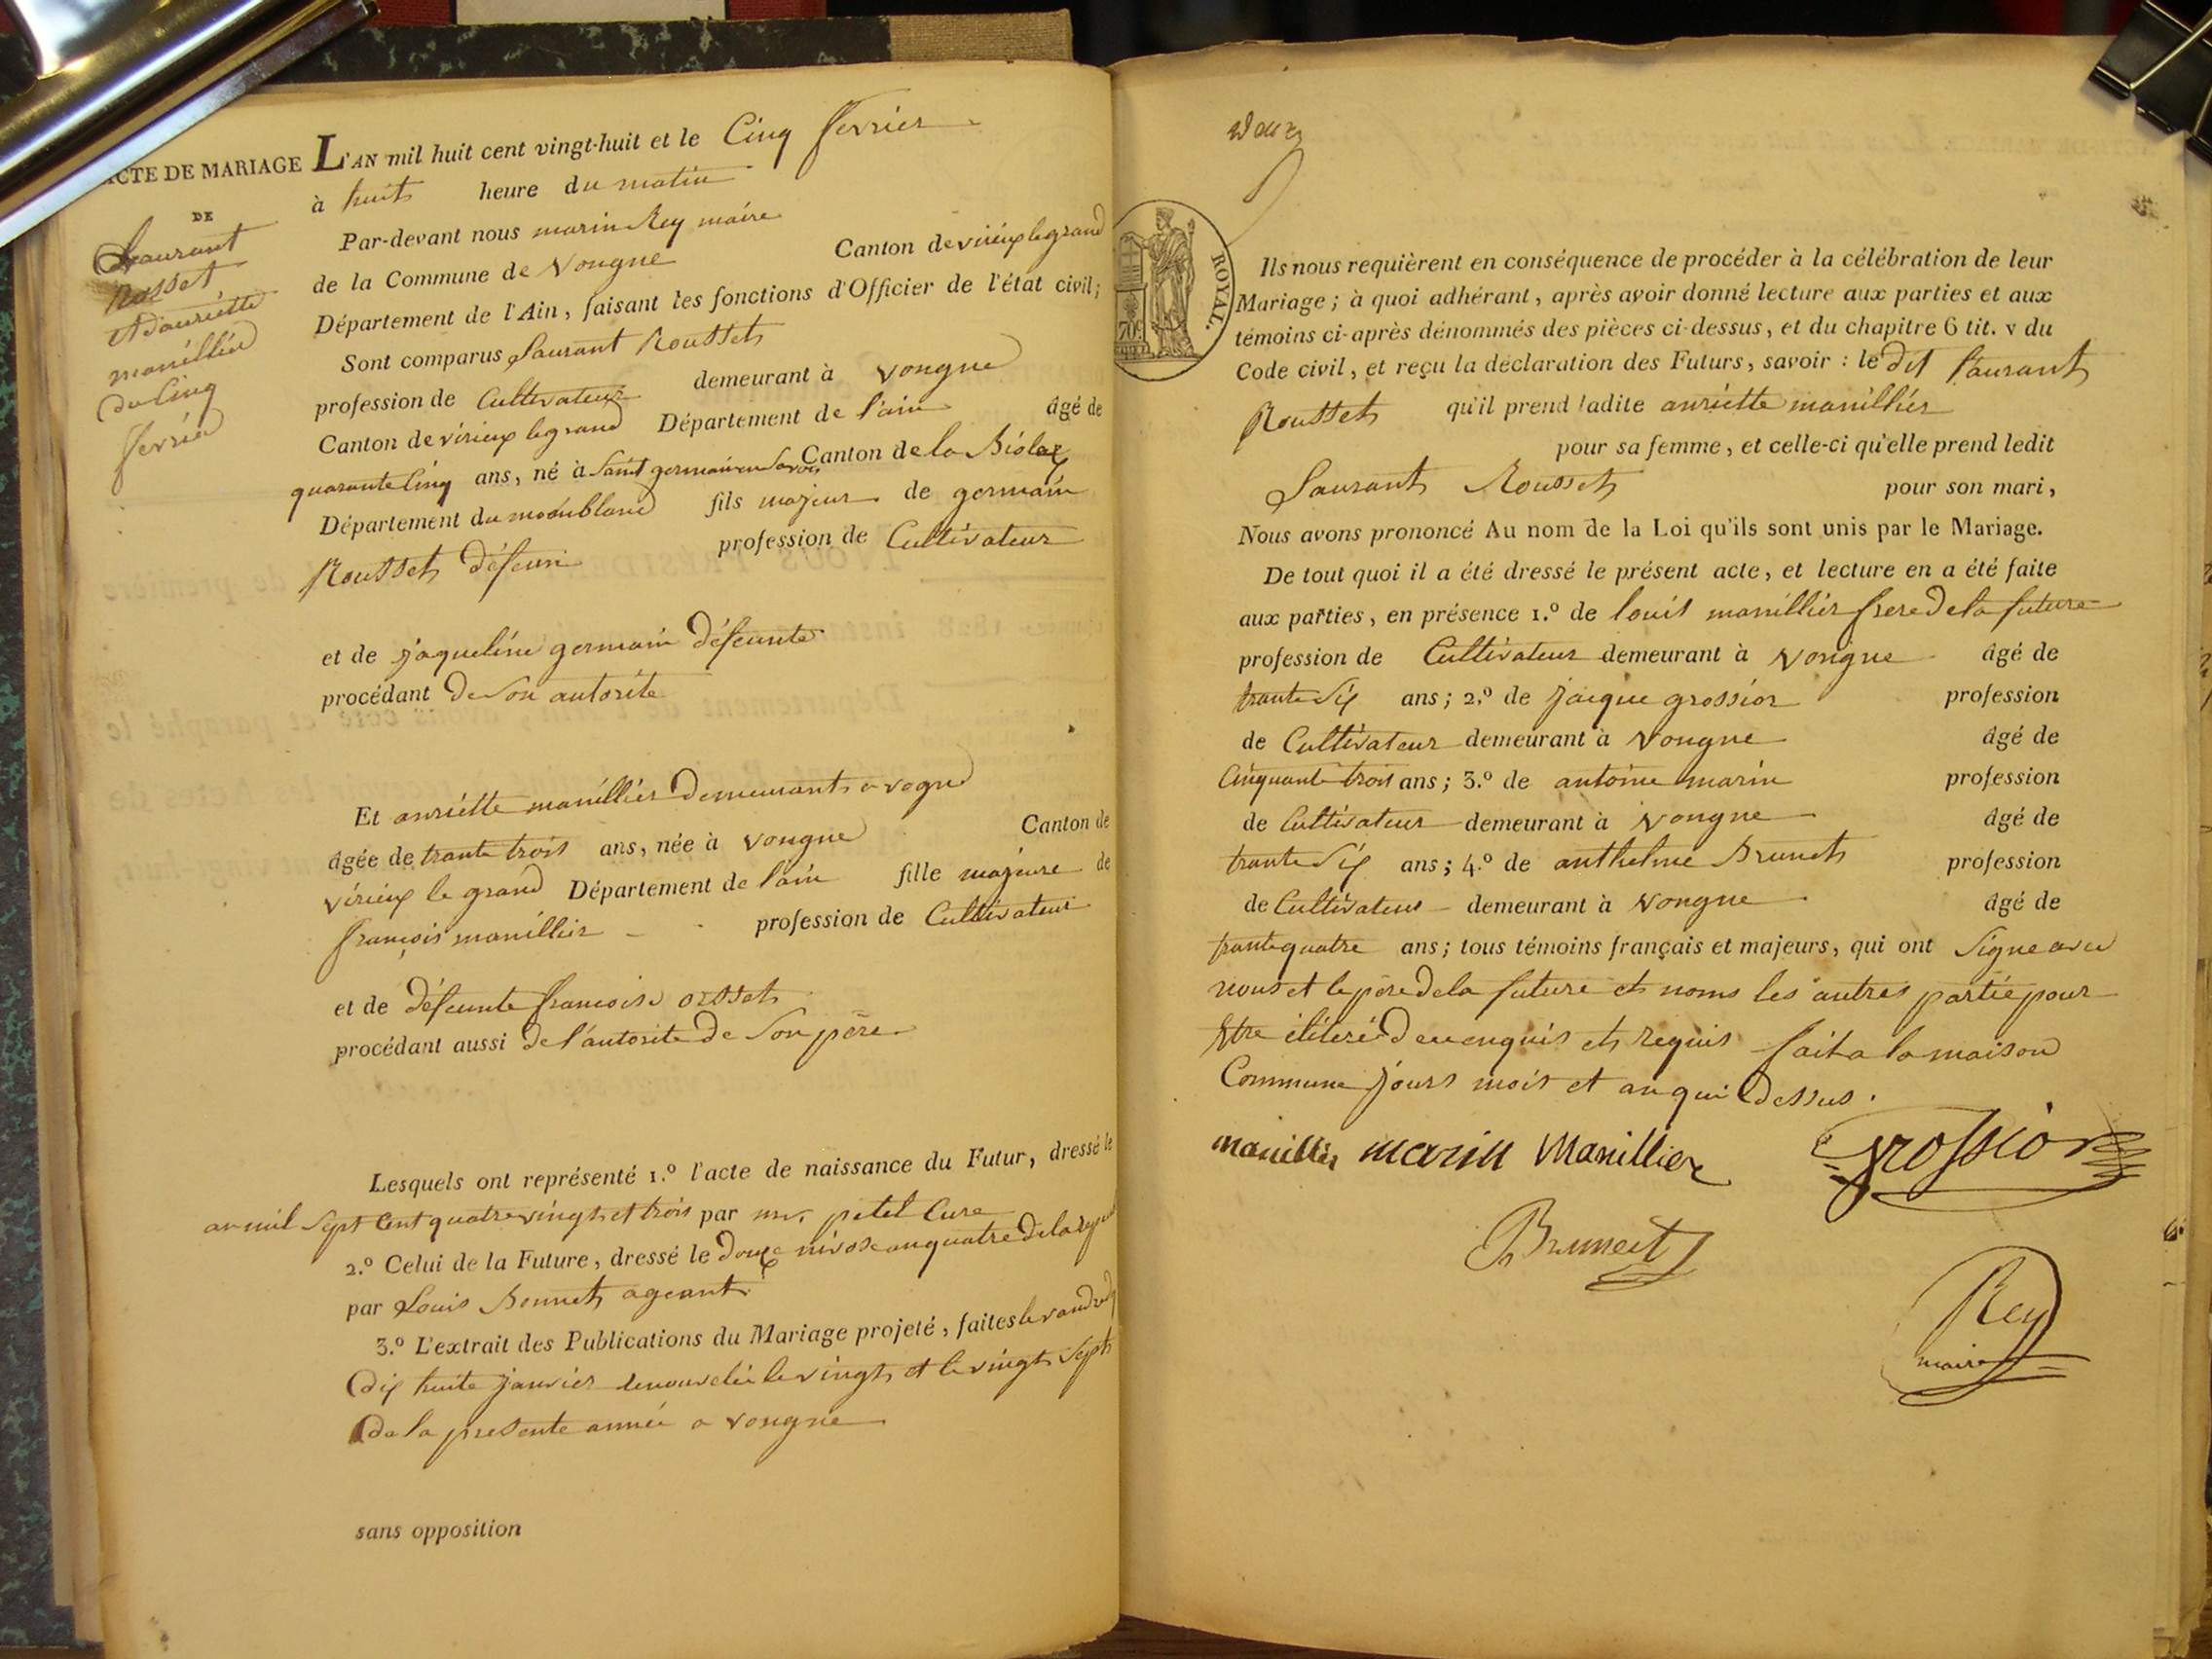 ACTE DE MARIAGE
DE
Laurant
Rosset
et d'anriette
manillier
du Cinq
fevrier
L'AN mil huit cent vingt-huit et le Cinq fevrier
à huit heure du matin
Par-devant nous marin Rey maire
de la Commune de Vongne Canton de virieux le grand
Département de l'Ain, faisant les fonctions d'Officier de l'état civil;
Sont comparus Laurant Rousset
profession de Cultivateur demeurant à vongne
Canton de virieux le grand Département de l'ain âgé de
quarante Cinq ans, né à Saint germain en Savoi Canton de la Biolex
Département du montblanc fils majeur de germain
Rousset défeun profession de Cultivateur
et de jaqueline germain défeunte
procédant de Son autorite
Et anriette manillier demeurant a vogne
âgée de trante trois ans, née à vongne Canton de
virieux le grand Département de l'ain fille majeure de
françois manillier profession de Cultivateur
et de défeunte francoise orsset
procédant aussi de l'autorite de Son père
Lesquels ont représenté 1.º l'acte de naissance du Futur, dressé le
an mil Sept Cent quatre vingt et trois par mr. petel Cure
2.º Celui de la Future, dressé le douze nivose an quatre de la
par Louis Bonnet ageant
3.º L'extrait des Publications du Mariage projeté, faites le vandredi
dix huite janvier renouvelée le vingt et le vingt Sept
de la presente année a vongne
sans opposition
douze
ROYAL.
Ils nous requièrent en conséquence de procéder à la célébration de leur
Mariage; à quoi adhérant, après avoir donné lecture aux parties et aux
témoins ci-après dénommés des pièces ci-dessus, et du chapitre 6 tit. v du
Code civil, et reçu la déclaration des Futurs, savoir : le dit Laurant
Rousset qu'il prend ladite anriette manillier
pour sa femme, et celle-ci qu'elle prend ledit
Laurant Rousset pour son mari,
Nous avons prononcé Au nom de la Loi qu'ils sont unis par le Mariage.
De tout quoi il a été dressé le présent acte, et lecture en a été faite
aux parties, en présence 1.º de louis manillier frere de la future
profession de Cultivateur demeurant à vongne âgé de
trante Six ans; 2.º de jacque grossior profession
de Cultivateur demeurant à vongne âgé de
Cinquante trois ans; 3.º de antoine marin profession
de Cultivateur demeurant à vongne âgé de
trante Six ans; 4.º de anthelme Brunet profession
de Cultivateur demeurant à vongne âgé de
trante quatre ans; tous témoins français et majeurs, qui ont Signe avec
nous et le père de la future et noms les autres partie pour
être iliteré de ce enquis et requis fait a la maison
Commune jours mois et an qui dessus.
manillier marin Manillier grossior
Brunet
Rey
maire